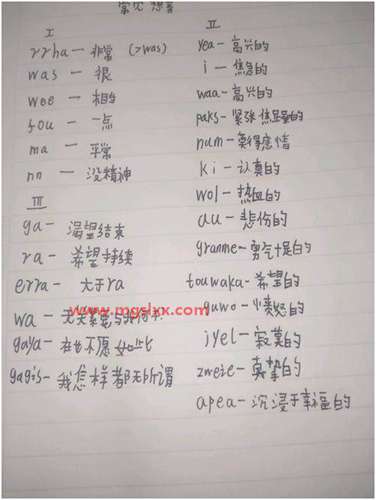 常见想音
I
rrha — 非常 (>was)
was — 很
wee — 相当
fou — 一点
ma — 平常
nn — 没精神
III
ga — 渴望结束
ra — 希望持续
erra — 大于ra
wa —
gaya — 在也不愿如此
gagis — 我怎样都无所谓
II
yea — 高兴的
i — 焦急的
waa — 高兴的
paks — 紧张 焦虑的
num — 莫得感情
ki — 认真的
wol — 热血的
au — 悲伤的
granme — 勇气十足的
touwaka — 希望的
guwo — 愤怒的
jyel — 寂寞的
zweie — 真挚的
apea — 沉浸于幸福的
www.mgslxx.com